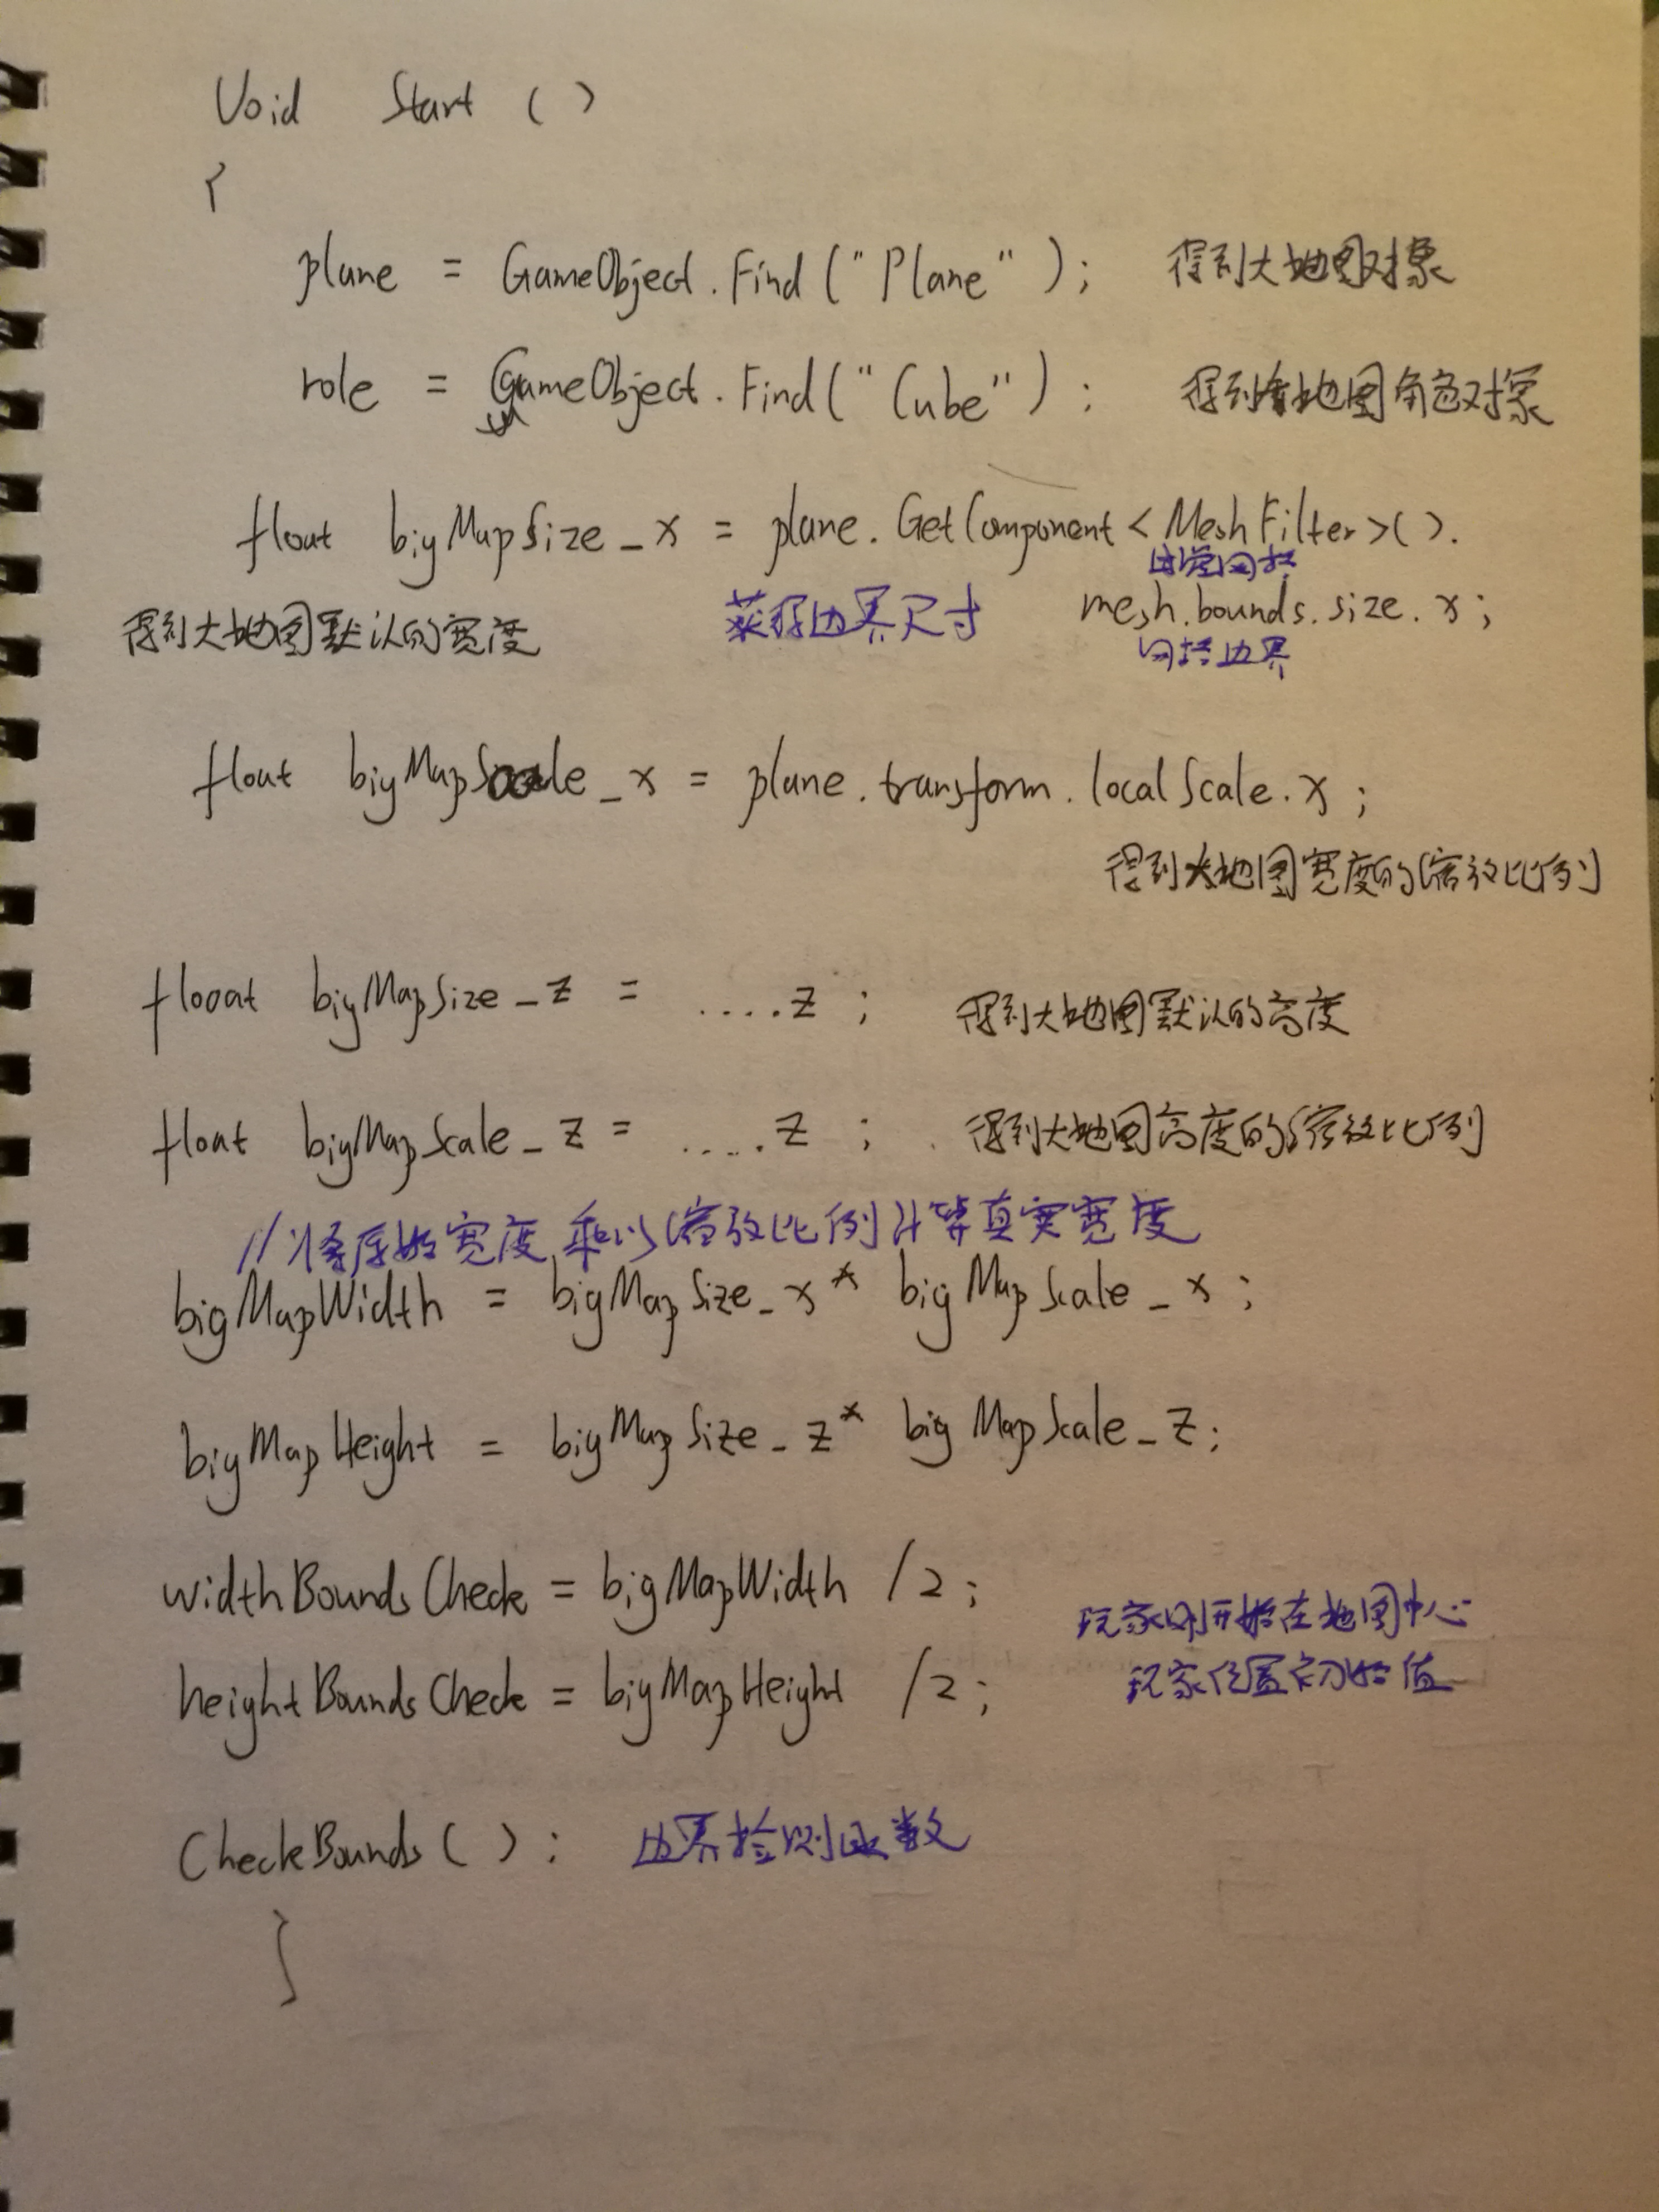 Void Start ( )
{
plane = GameObject.Find("Plane"); 得到大地图对象
role = GameObject.Find("Cube"); 得到地图角色对象
float bigMapSize_x = plane.GetComponent<MeshFilter>().
mesh.bounds.size.x;
得到大地图默认的宽度 获得边界尺寸
网格边界
float bigMapScale_x = plane.transform.localScale.x;
得到大地图宽度的缩放比例
flooat bigMapSize_z = ....z ; 得到大地图默认的高度
float bigMapScale_z = ....z ; 得到大地图高度的缩放比例
//将原始宽度乘以缩放比例计算真实宽度
bigMapWidth = bigMapSize_x * bigMapScale_x ;
bigMapHeight = bigMapSize_z * bigMapScale_z;
widthBoundsCheck = bigMapWidth /2; 玩家刚开始在地图中心
heightBoundsCheck = bigMapHeight /2; 玩家位置初始值
CheckBounds( ); 边界检测函数
}